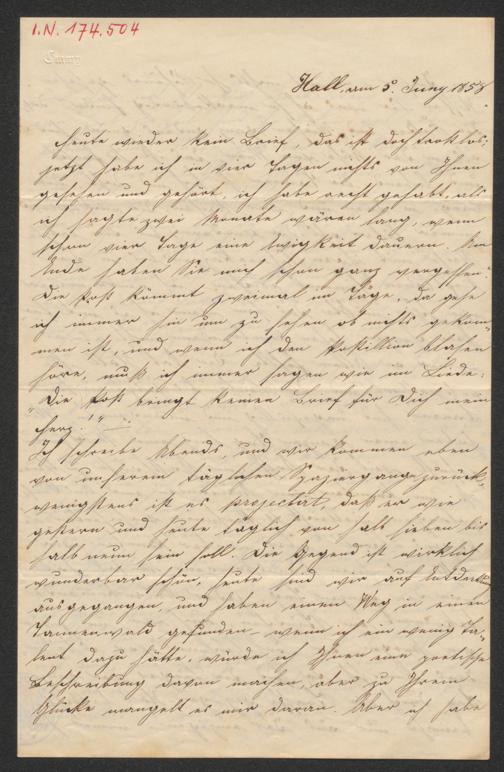 I.N. 174.504
Hall, am 5. Juny 1858
Heute wieder kein Brief, das ist doch trostlos;
jetzt habe ich in vier Tagen nichts von Ihnen
gesehen und gehört, ich habe recht gehabt, als
ich sagte zwei Monate wären lang, wenn
schon vier Tage eine Ewigkeit dauern. Am
Ende haben Sie mich schon ganz vergessen!
Die Post kömmt zweimal im Tage, da gehe
ich immer hin um zu sehen ob nichts gekom-
men ist, und wenn ich den Postillion blasen
höre, muß ich immer sagen wie im Liede:
"Die Post bringt keinen Brief für Dich mein
Herz!"
Ich schreibe Abends, und wir kommen eben
von unserem täglichen Spaziergange zurück,
wenigstens ist es projectirt, daß er wie
gestern und heute täglich von halb sieben bis
halb neun sein soll. Die Gegend ist wirklich
wunderbar schön, heute sind wir auf Entdeckung
ausgegangen, und haben einen Weg in einen
Tannenwald gefunden – wenn ich ein wenig Ta-
lent dazu hätte, würde ich Ihnen eine poetische
Beschreibung davon machen, aber zu Ihrem
Glücke mangelt es mir daran. Aber ich habe